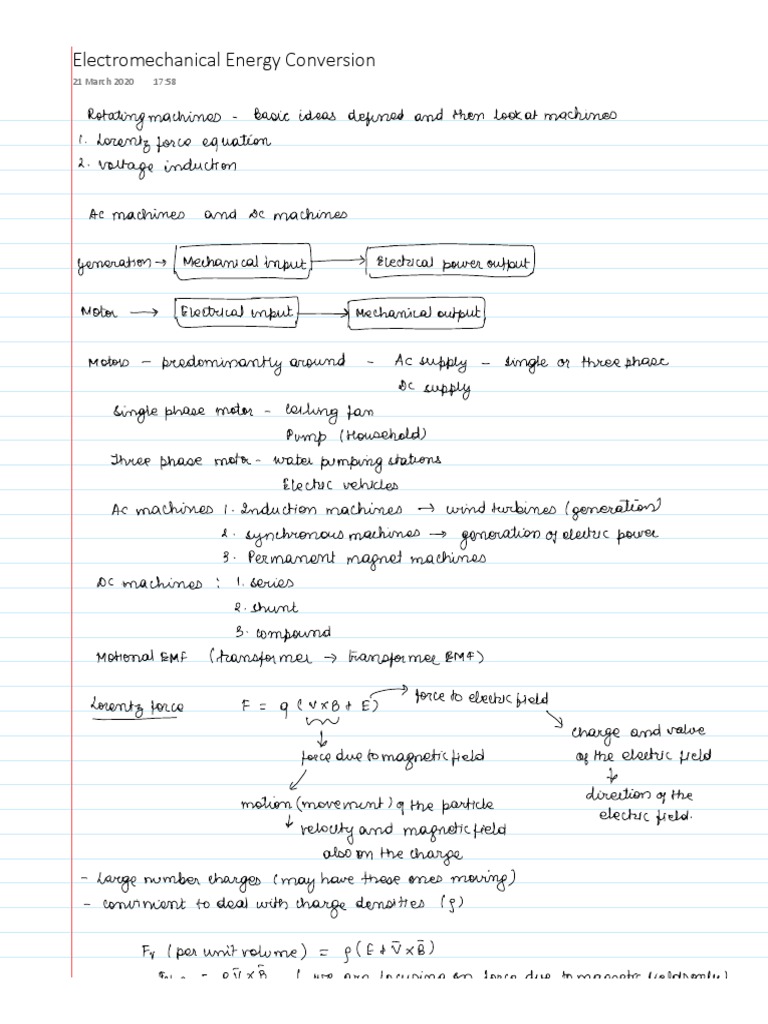 Electromechanical Energy Conversion
21 March 2020 17:58
Rotating machines - Basic ideas defined and then look at machines
1. Lorentz force equation
2. voltage induction
AC machines and DC machines
generation → Mechanical input → Electrical power output
Motor → Electrical input → Mechanical output
Motors - predominantly around - AC supply - single or three phase
DC supply
Single phase motor - ceiling fan
Pump (Household)
Three phase motor - water pumping stations
Electric vehicles
AC machines 1. Induction machines → wind turbines (generation)
2. synchronous machines → generation of electric power
3. Permanent magnet machines
DC machines : 1. series
2. shunt
3. compound
Motional EMF (transformer → transformer EMF)
Lorentz force F = q (V×B + E) → force to electric field
charge and value
force due to magnetic field of the electric field
direction of the
motion (movement) of the particle electric field.
velocity and magnetic field
also on the charge
- Large number charges (may have these ones moving)
- convinient to deal with charge densities (ρ)
Fv (per unit volume) = ρ(E + V̄ × B̄)
= ρV̄ × B̄ ( we are focusing on force due to magnetic field only)